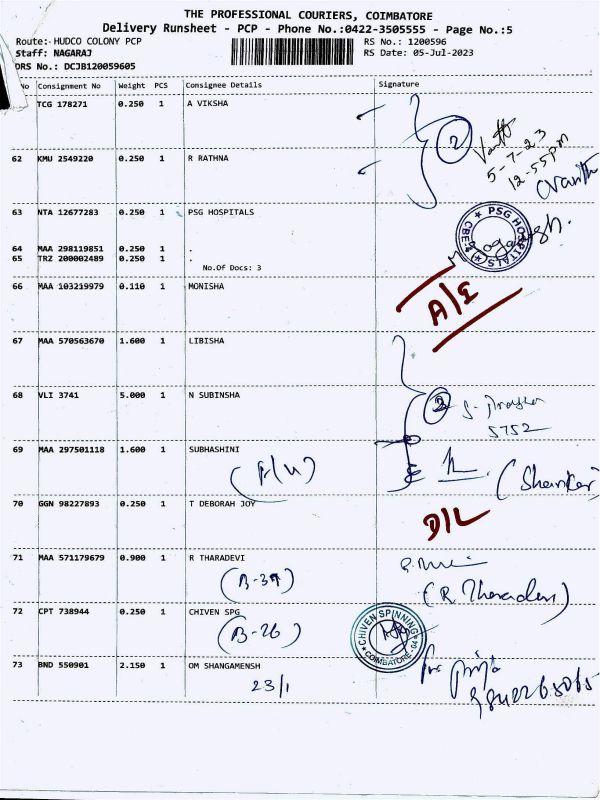 THE PROFESSIONAL COURIERS, COIMBATORE
Delivery Runsheet - PCP - Phone No.:0422-3505555 - Page No.:5
Route:- HUDCO COLONY PCP RS No.: 1200596
Staff: NAGARAJ RS Date: 05-Jul-2023
DRS No.: DCJB120059605
No Consignment No Weight PCS Consignee Details Signature
TCG 178271 0.250 1 A VIKSHA
2
5-7-23
12-55pm
62 KMU 2549220 0.250 1 R RATHNA
63 NTA 12677283 0.250 1 PSG HOSPITALS
PSG HOSPITALS CBE-4
64 MAA 298119851 0.250 1 .
65 TRZ 200002489 0.250 1 .
No.Of Docs: 3
66 MAA 103219979 0.110 1 MONISHA
A/I
67 MAA 570563670 1.600 1 LIBISHA
68 VLI 3741 5.000 1 N SUBINSHA
2
5752
69 MAA 297501118 1.600 1 SUBHASHINI
(Shankar)
70 GGN 98227893 0.250 1 T DEBORAH JOY
D/L
71 MAA 571179679 0.900 1 R THARADEVI
(B-39)
(R Tharadevi)
72 CPT 738944 0.250 1 CHIVEN SPG
(B-26)
CHIVEN SPINNING COIMBATORE-04
73 BND 550901 2.150 1 OM SHANGAMENSH
23/1